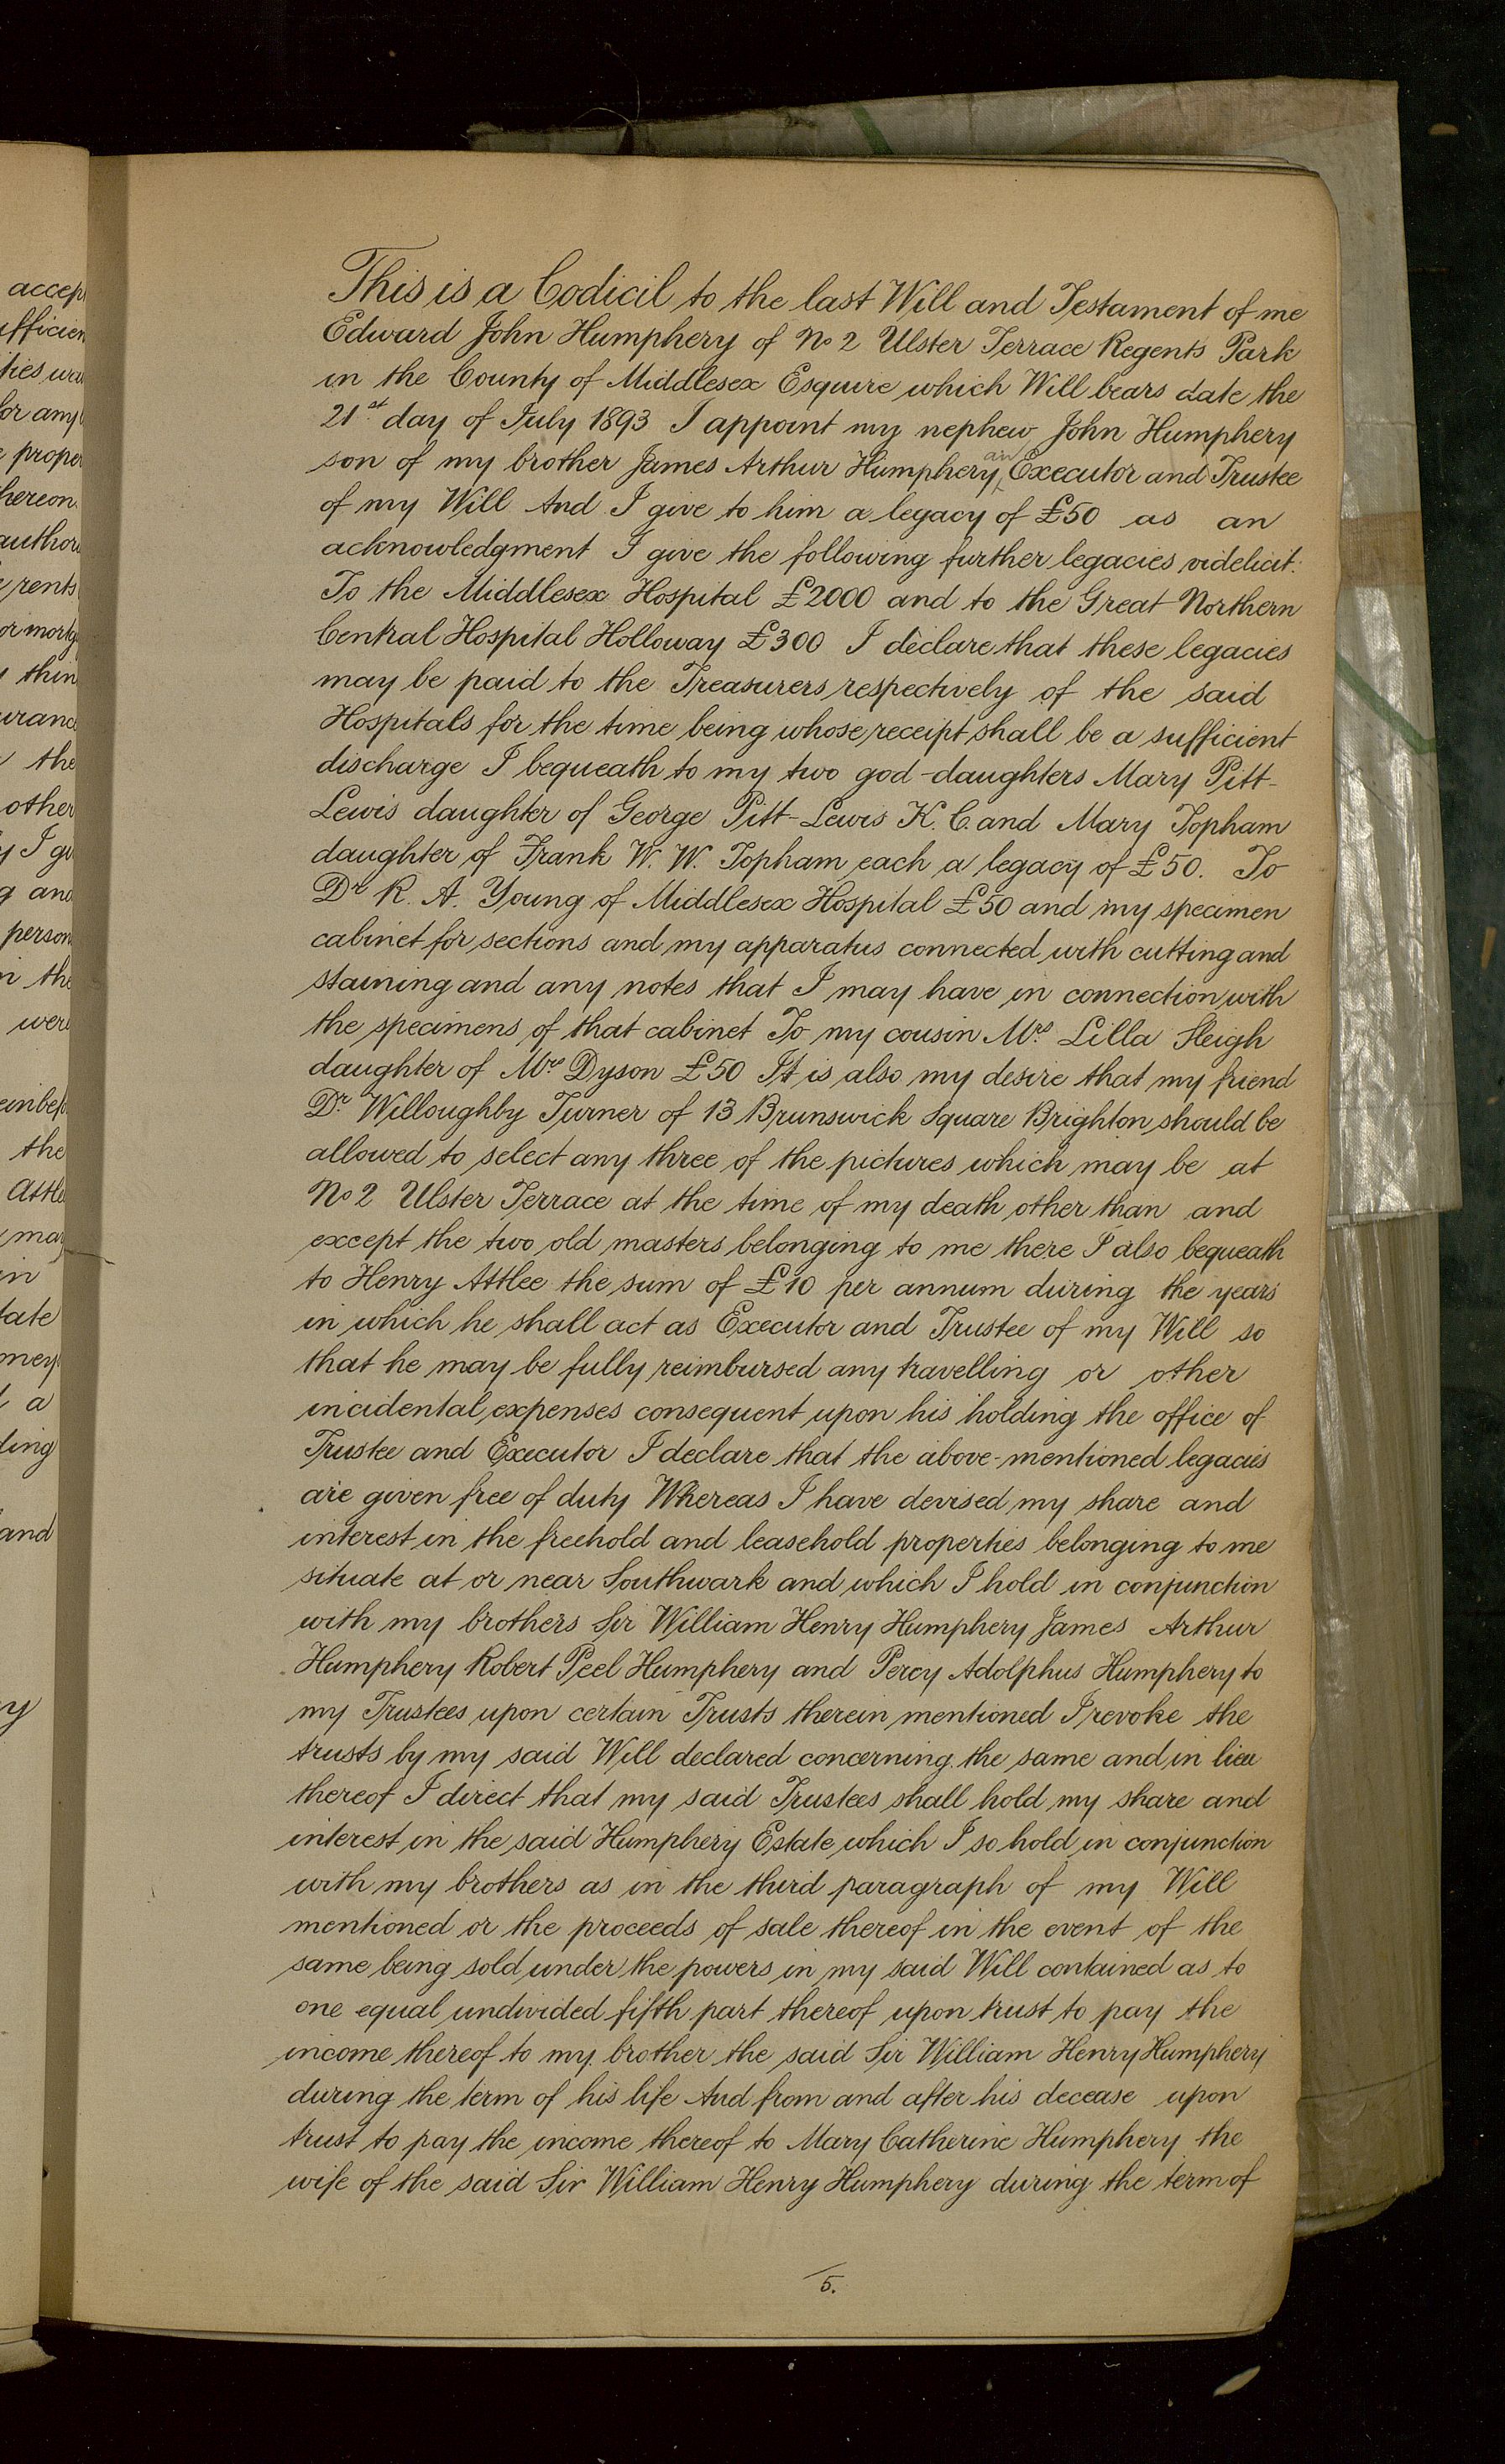 accep
fficien
ties wa
for any
e proper
hereon
author
e rents
or mortg
y thin
uranc
the
other
y I gi
g and
person
n the
were
einbef
the
Attle
ma
in
tate
ney
a
ding
and
y
This is a Codicil to the last Will and Testament of me
Edward John Humphery of No 2 Ulster Terrace Regents Park
in the County of Middlesex Esquire which Will bears date the
21st day of July 1893 I appoint my nephew John Humphery
son of my brother James Arthur Humphery an Executor and Trustee
of my Will And I give to him a legacy of £50 as an
acknowledgment I give the following further legacies videlicit:
To the Middlesex Hospital £2000 and to the Great Northern
Central Hospital Holloway £300 I declare that these legacies
may be paid to the Treasurers respectively of the said
Hospitals for the time being whose receipt shall be a sufficient
discharge I bequeath to my two god-daughters Mary Pitt-
Lewis daughter of George Pitt-Lewis K.C. and Mary Topham
daughter of Frank W. W. Topham each a legacy of £50. To
Dr R. A. Young of Middlesex Hospital £50 and my specimen
cabinet for sections and my apparatus connected with cutting and
staining and any notes that I may have in connection with
the specimens of that cabinet To my cousin Mrs Lilla Sleigh
daughter of Mrs Dyson £50 It is also my desire that my friend
Dr Willoughby Turner of 13 Brunswick Square Brighton should be
allowed to select any three of the pictures which may be at
No 2 Ulster Terrace at the time of my death other than and
except the two old masters belonging to me there I also bequeath
to Henry Attlee the sum of £10 per annum during the years
in which he shall act as Executor and Trustee of my Will so
that he may be fully reimbursed any travelling or other
incidental expenses consequent upon his holding the office of
Trustee and Executor I declare that the above-mentioned legacies
are given free of duty Whereas I have devised my share and
interest in the freehold and leasehold properties belonging to me
situate at or near Southwark and which I hold in conjunction
with my brothers Sir William Henry Humphery James Arthur
Humphery Robert Peel Humphery and Percy Adolphus Humphery to
my Trustees upon certain Trusts therein mentioned I revoke the
trusts by my said Will declared concerning the same and in lieu
thereof I direct that my said Trustees shall hold my share and
interest in the said Humphery Estate which I so hold in conjunction
with my brothers as in the third paragraph of my Will
mentioned or the proceeds of sale thereof in the event of the
same being sold under the powers in my said Will contained as to
one equal undivided fifth part thereof upon trust to pay the
income thereof to my brother the said Sir William Henry Humphery
during the term of his life And from and after his decease upon
trust to pay the income thereof to Mary Catherine Humphery the
wife of the said Sir William Henry Humphery during the term of
5.